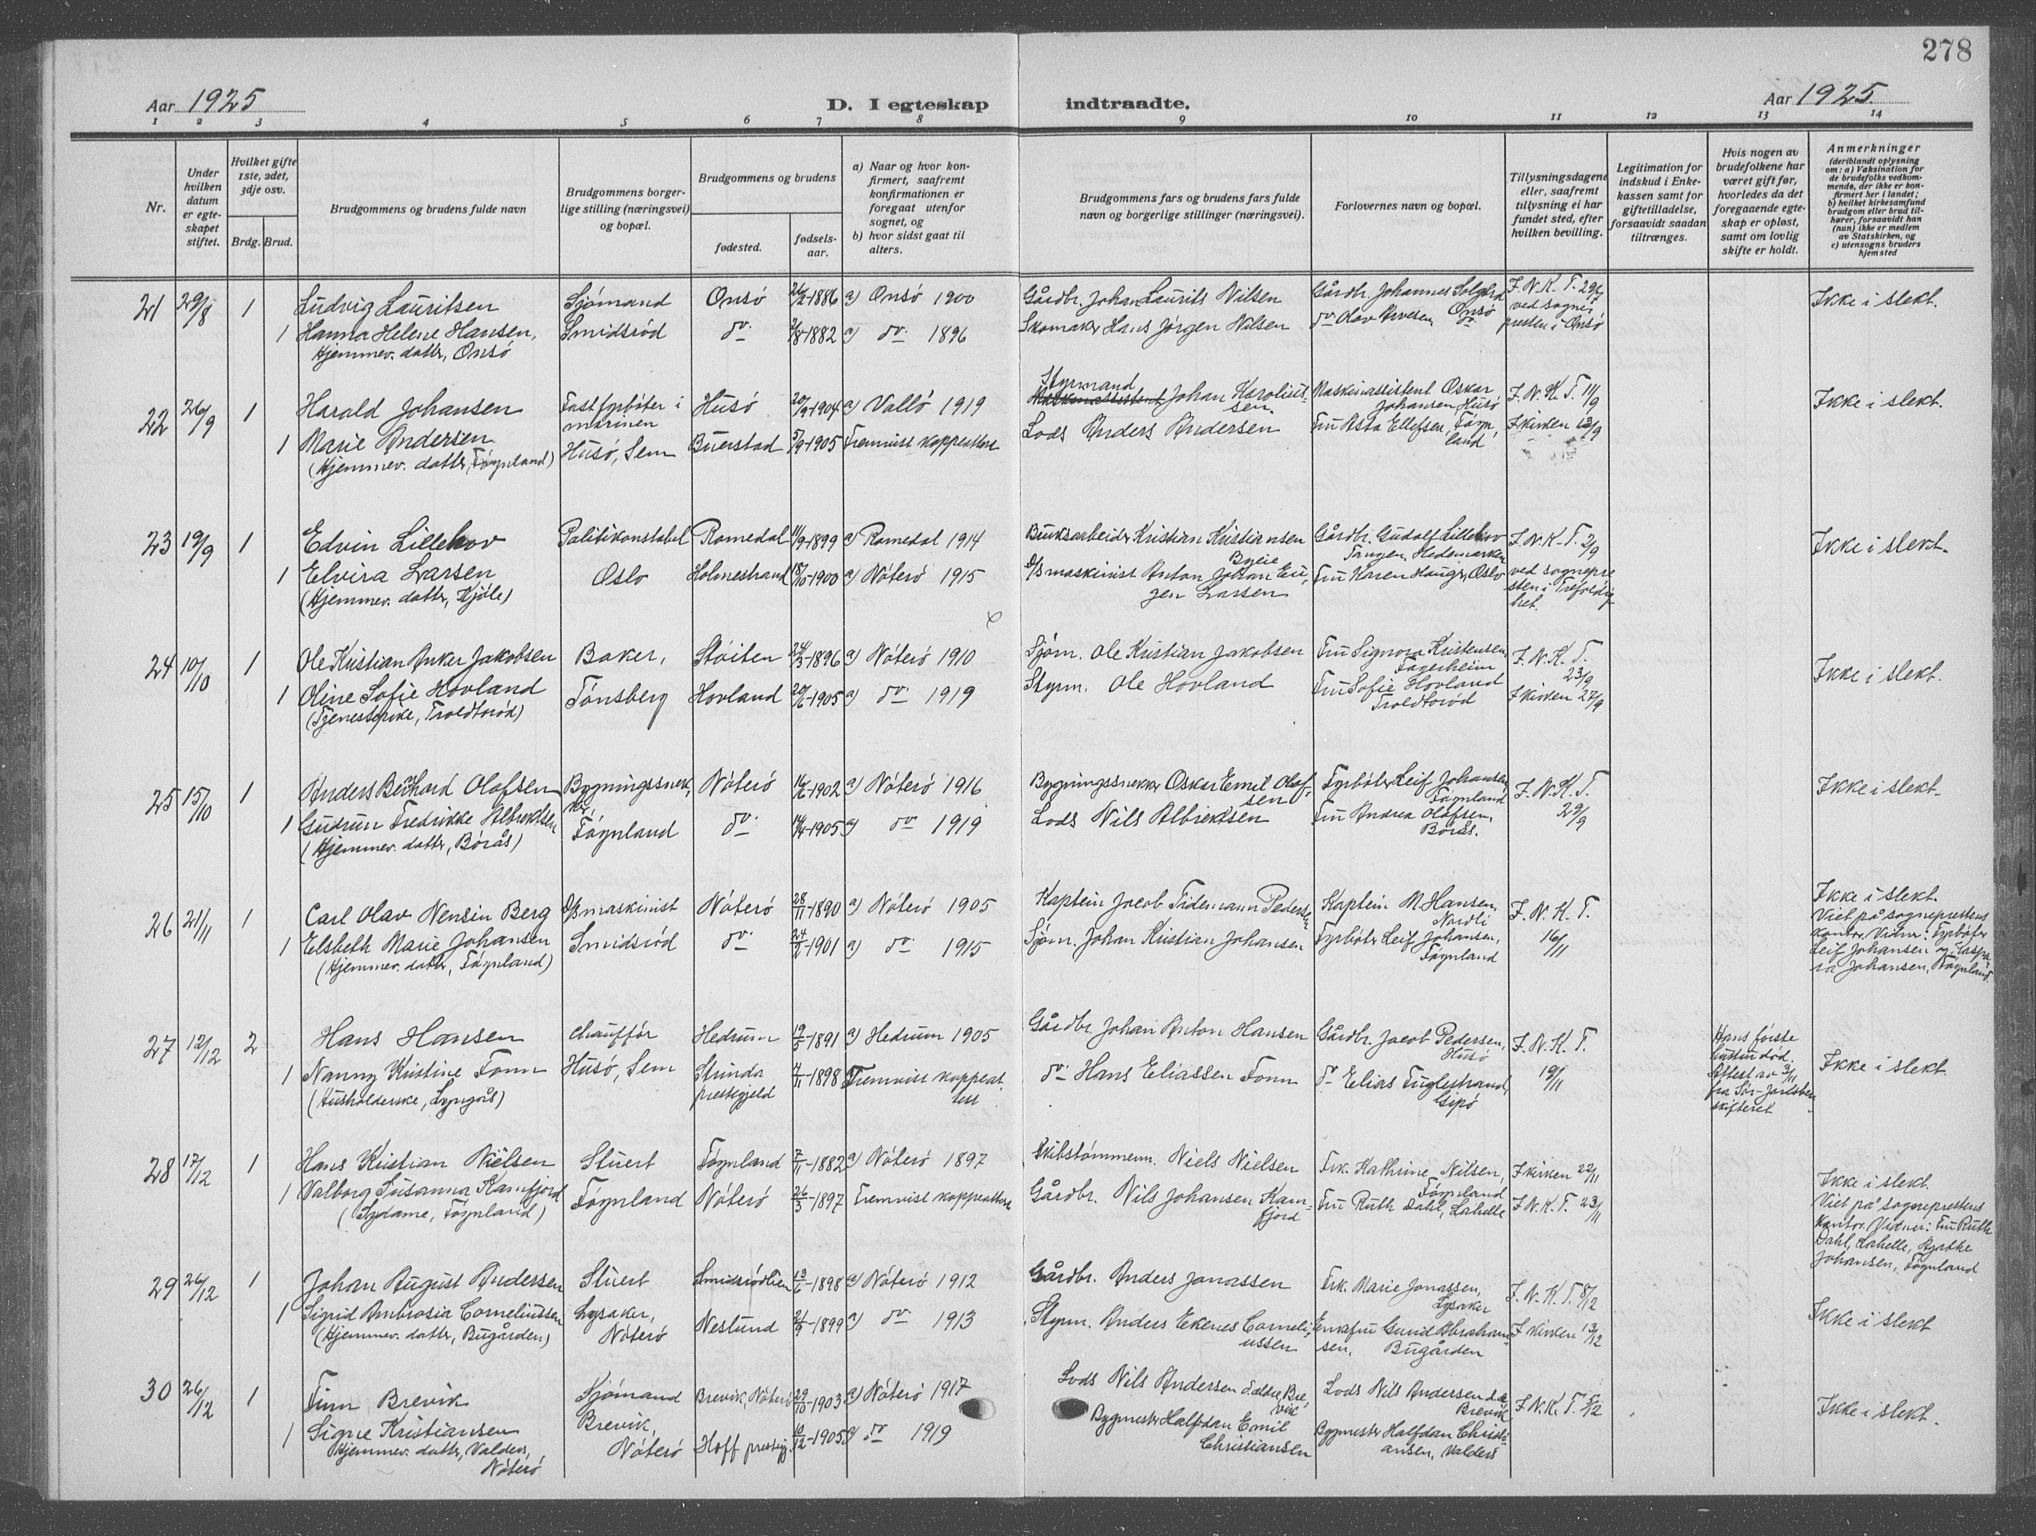 278
Aar 1925
D. I egteskap
indtraadte.
Aar 1925.
1 2 3 4 5 6 7 8 9 10 11 12 13 14
Nr.
Under hvilken datum er egteskapet stiftet.
Hvilket gifte 1ste, 2det, 3dje osv.
Brdg. Brud.
Brudgommens og brudens fulde navn
Brudgommens borgerlige stilling (næringsvei) og bopæl.
Brudgommens og brudens
fødested.
fødselsaar.
a) Naar og hvor konfirmert, saafremt konfirmationen er foregaat utenfor sognet, og
b) hvor sidst gaat til alters.
Brudgommens fars og brudens fars fulde navn og borgerlige stillinger (næringsvei).
Forlovernes navn og bopæl.
Tillysningsdagene eller, saafremt tillysning ei har fundet sted, efter hvilken bevilling.
Legitimation for indskud i Enkekassen samt for giftetilladelse, forsaavidt saadan tiltrænges.
Hvis nogen av brudefolkene har været gift før, hvorledes da det foregaaende egteskap er opløst, samt om lovlig skifte er holdt.
Anmerkninger
(deriblandt oplysning om: a) Vaksination for de brudefolks vedkommende, der ikke er konfirmert her i landet; b) hvilket kirkesamfund brudgom eller brud tilhører, forsaavidt han (hun) ikke er medlem av Statskirken, og c) utensogns bruders hjemsted
21 29/8 1 Ludvig Lauritsen Sjømand Onsö 26/2-1886 a) Onsö 1900 Gårdbr. Johan Laurits Nilsen Gårdbr. Johannes Solgård Onsö F. N. K. T. 29/7 Ikke i slekt.
1 Hanna Helene Hansen, Smidsröd do 1882 a) do 1896 Skomaker Hans Jörgen Nilsen do Olav Arvesen do ved sognepresten i Onsö
Hjemmev. datter, Onsö
22 26/9 1 Harald Johansen Fastfyrböter i marinen Husö 20/9-1904 a) Vallö 1919 Styrmand Johan Karoliussen Maskinassistent Oskar Johansen Husö F. N. K. T. 11/9 Ikke i slekt.
1 Marie Andersen Husö, Sem Buerstad 5/9-1905 Fremvist koppeattest Lods Anders Andersen Fru Asta Ellefsen, Föynland I kirken 13/9
(Hjemmev. datter, Föynland)
23 19/9 1 Edvin Lillehov Politikonstabel Romedal 11/9-1899 a) Romedal 1914 Bruksarbeider Kristian Kristiansen Byeie Gårdbr. Gudolf Lillehov Tangen, Hedemarken F. N. K. T. 2/9 Ikke i slekt.
1 Elvira Larsen Oslo Holmestrand 18/10-1900 a) Nöterö 1915 D/s maskinist Anton Johan Eugen Larsen Fru Karen Hauger, Oslo ved sognepresten i Trefoldighet.
(Hjemmev. datter, Kjöle)
24 10/10 1 Ole Kristian Anker Jakobsen Baker, Stöiten 24/3-1896 a) Nöterö 1910 Sjöm. Ole Kristian Jakobsen Fru Signora Kristensen, Fagerheim F. N. K. T. 23/9 Ikke i slekt.
1 Oline Sofie Hovland Tönsberg Hovland 20/6-1905 a) do 1919 Styrm. Ole Hovland Fru Sofie Hovland Troldtoröd I kirken 27/9
(Tjenestepike, Troldtoröd)
25 15/10 1 Anders Bernhard Olafsen Bygningssnekker, Nöterö 16/6-1902 a) Nöterö 1916 Bygningssnekker Oskar Emil Olafsen Fyrböter Leif Johansen, Föynland F. N. K. T. 29/9 Ikke i slekt.
1 Gudrun Fredrikke Albrektsen Föynland do 14/4-1905 a) do 1919 Lods Nils Albrektsen Fru Andrea Olafsen, Börås.
(Hjemmev. datter, Börås)
26 21/11 1 Carl Olav Nensin Berg D/s maskinist Nöterö 28/11-1890 a) Nöterö 1905 Kaptein Jacob Tidemann Pedersen Kaptein M. Hansen, Nordli F. N. K. T. 16/11 Ikke i slekt.
1 Elsbeth Marie Johansen Smidsröd do 1901 a) do 1915 Sjöm. Johan Kristian Johansen Fyrböter Leif Johansen, Föynland
(Hjemmev. datter, Föynland)
Viet på sogneprestens kontor. Vidner: Fyrböter Leif Johansen og Johansen, Föynland.
27 12/12 2 Hans Hansen chauffør Hedrum 19/5-1891 a) Hedrum 1905 Gårdbr. Johan Anton Hansen Gårdbr. Jacob Pedersen, Husö F. N. K. T. 19/11 Hans første hustru död. Attest av 3/11 fra Sör-Jarlsberg skifteret Ikke i slekt
1 Nanny Kristine Fonn Husö, Sem Strinda prestegjeld 7/11-1898 Fremvist koppeattest do Hans Eliassen Fonn do Elias Fuglestrand, Gipö
(Husholderske, Lyngås)
28 17/12 1 Hans Kristian Nielsen Stuert Föynland 7/11-1882 a) Nöterö 1897 Skibstömmerm. Niels Nielsen Frk. Kathrine Nilsen, Föynland I kirken 22/11 Ikke i slekt
1 Valborg Susanna Kamfjord Föynland Nöterö 26/3-1897 Fremvist koppeattest Gårdbr. Nils Johansen Kamfjord Fru Ruth Dahl, Labelle F. N. K. T. 23/11
(Sydame, Föynland)
Viet på sogneprestens kontor. Vidner: Fru Ruth Dahl, Labelle, Agathe Johansen, Föynland
29 26/12 1 Johan August Andersen Stuert Smidsrödlien 13/6-1898 a) Nöterö 1912 Gårdbr. Anders Jonassen Frk. Marie Jonassen, Lysaker F. N. K. T. 8/12 Ikke i slekt
1 Sigrid Ambrosia Corneliussen Lysaker, Nöterö Neslund 21/9-1899 a) do 1913 Styrm. Anders Ekenes Corneliussen Enkefru Gunid Abrahamsen, Bugården I kirken 13/12
(Hjemmev. datter, Bugården)
30 26/12 1 Finn Brevik Sjömand Brevik, Nöterö 29/10-1903 a) Nöterö 1917 Lods Nils Andersen Brevik Lods Nils Andersen Brevik F. N. K. T. 5/12 Ikke i slekt.
1 Signe Kristiansen Brevik, Nöterö Hoff prestegj. 10/12-1905 a) do 1919 Bygmester Halfdan Emil Christiansen Bygmester Halfdan Christiansen, Valders
Hjemmev. datter, Valders, Nöterö